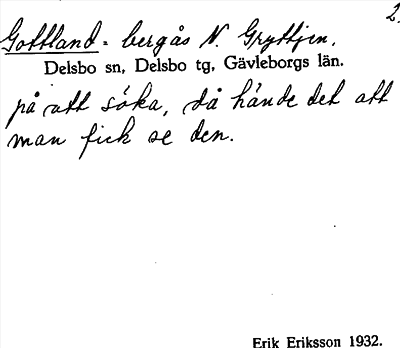 2.
Gottland - bergås N. Gryttjen.
Delsbo sn, Delsbo tg, Gävleborgs län.
på att söka, då hände det att
man fick se den.
Erik Eriksson 1932.